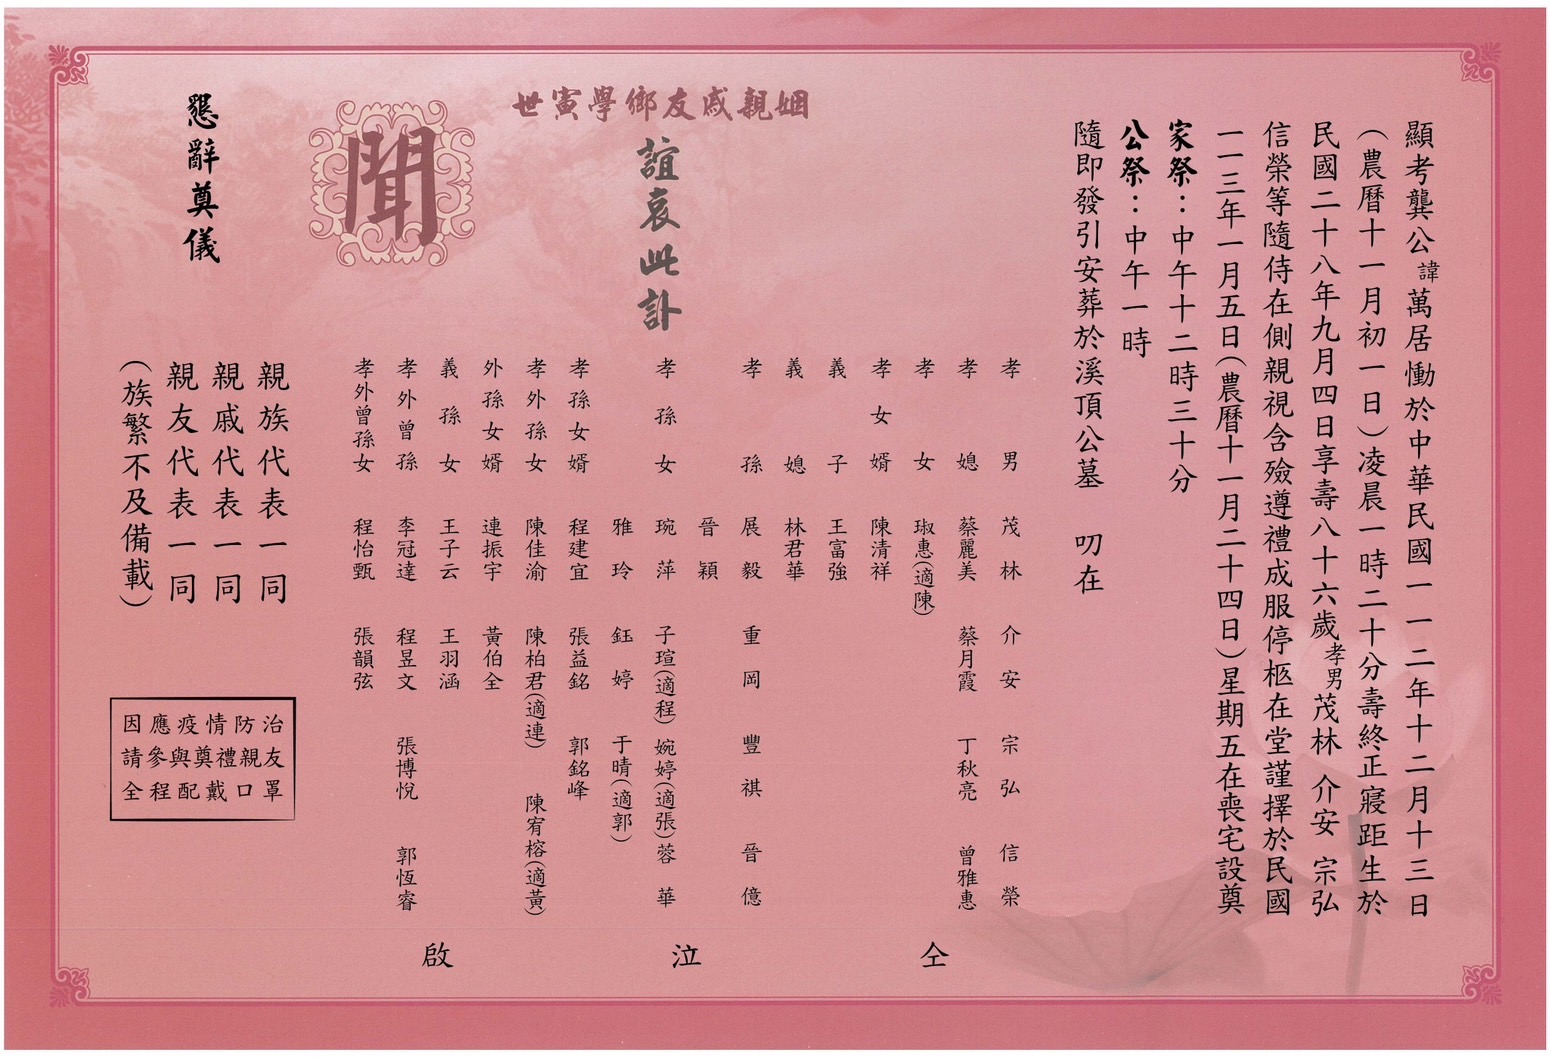 顯考龔公諱萬居慟於中華民國一一二年十二月十三日
（農曆十一月初一日）凌晨一時二十分壽終正寢距生於
民國二十八年九月四日享壽八十六歲孝男茂林 介安 宗弘
信榮等隨侍在側親視含殮遵禮成服停柩在堂謹擇於民國
一一三年一月五日(農曆十一月二十四日)星期五在喪宅設奠
家祭：中午十二時三十分
公祭：中午一時
隨即發引安葬於溪頂公墓 叨在
姻親戚友鄉學寅世
誼哀此訃
聞
孝男 茂林 介安 宗弘 信榮
孝媳 蔡麗美 蔡月霞 丁秋亮 曾雅惠
孝女 琡惠(適陳)
孝女婿 陳清祥
義子 王富強
義媳 林君華
孝孫 展毅 重岡 豐祺 晉億
晉穎
孝孫女 琬萍 子瑄(適程) 婉婷(適張) 蓉華
雅玲 鈺婷 于晴(適郭)
孝孫女婿 程建宜 張益銘 郭銘峰
孝外孫女 陳佳渝 陳柏君(適連) 陳宥榕(適黃)
外孫女婿 連振宇 黃伯全
義孫女 王子云 王羽涵
孝外曾孫 李冠達 程昱文 張博悅 郭恆睿
孝外曾孫女 程怡甄 張韻弦
仝 泣 啟
懇辭奠儀
親族代表一同
親戚代表一同
親友代表一同
(族繁不及備載)
因應疫情防治
請參與奠禮親友
全程配戴口罩